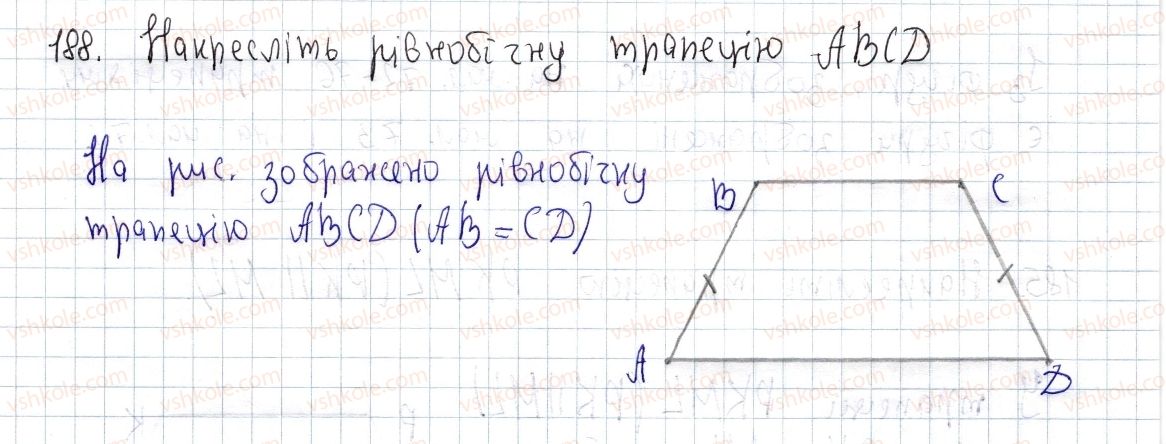 188. Накресліть рівнобічну трапецію ABCD
На рис. зображено рівнобічну
трапецію ABCD (AB = CD)
B
C
A
D
vshkole.com